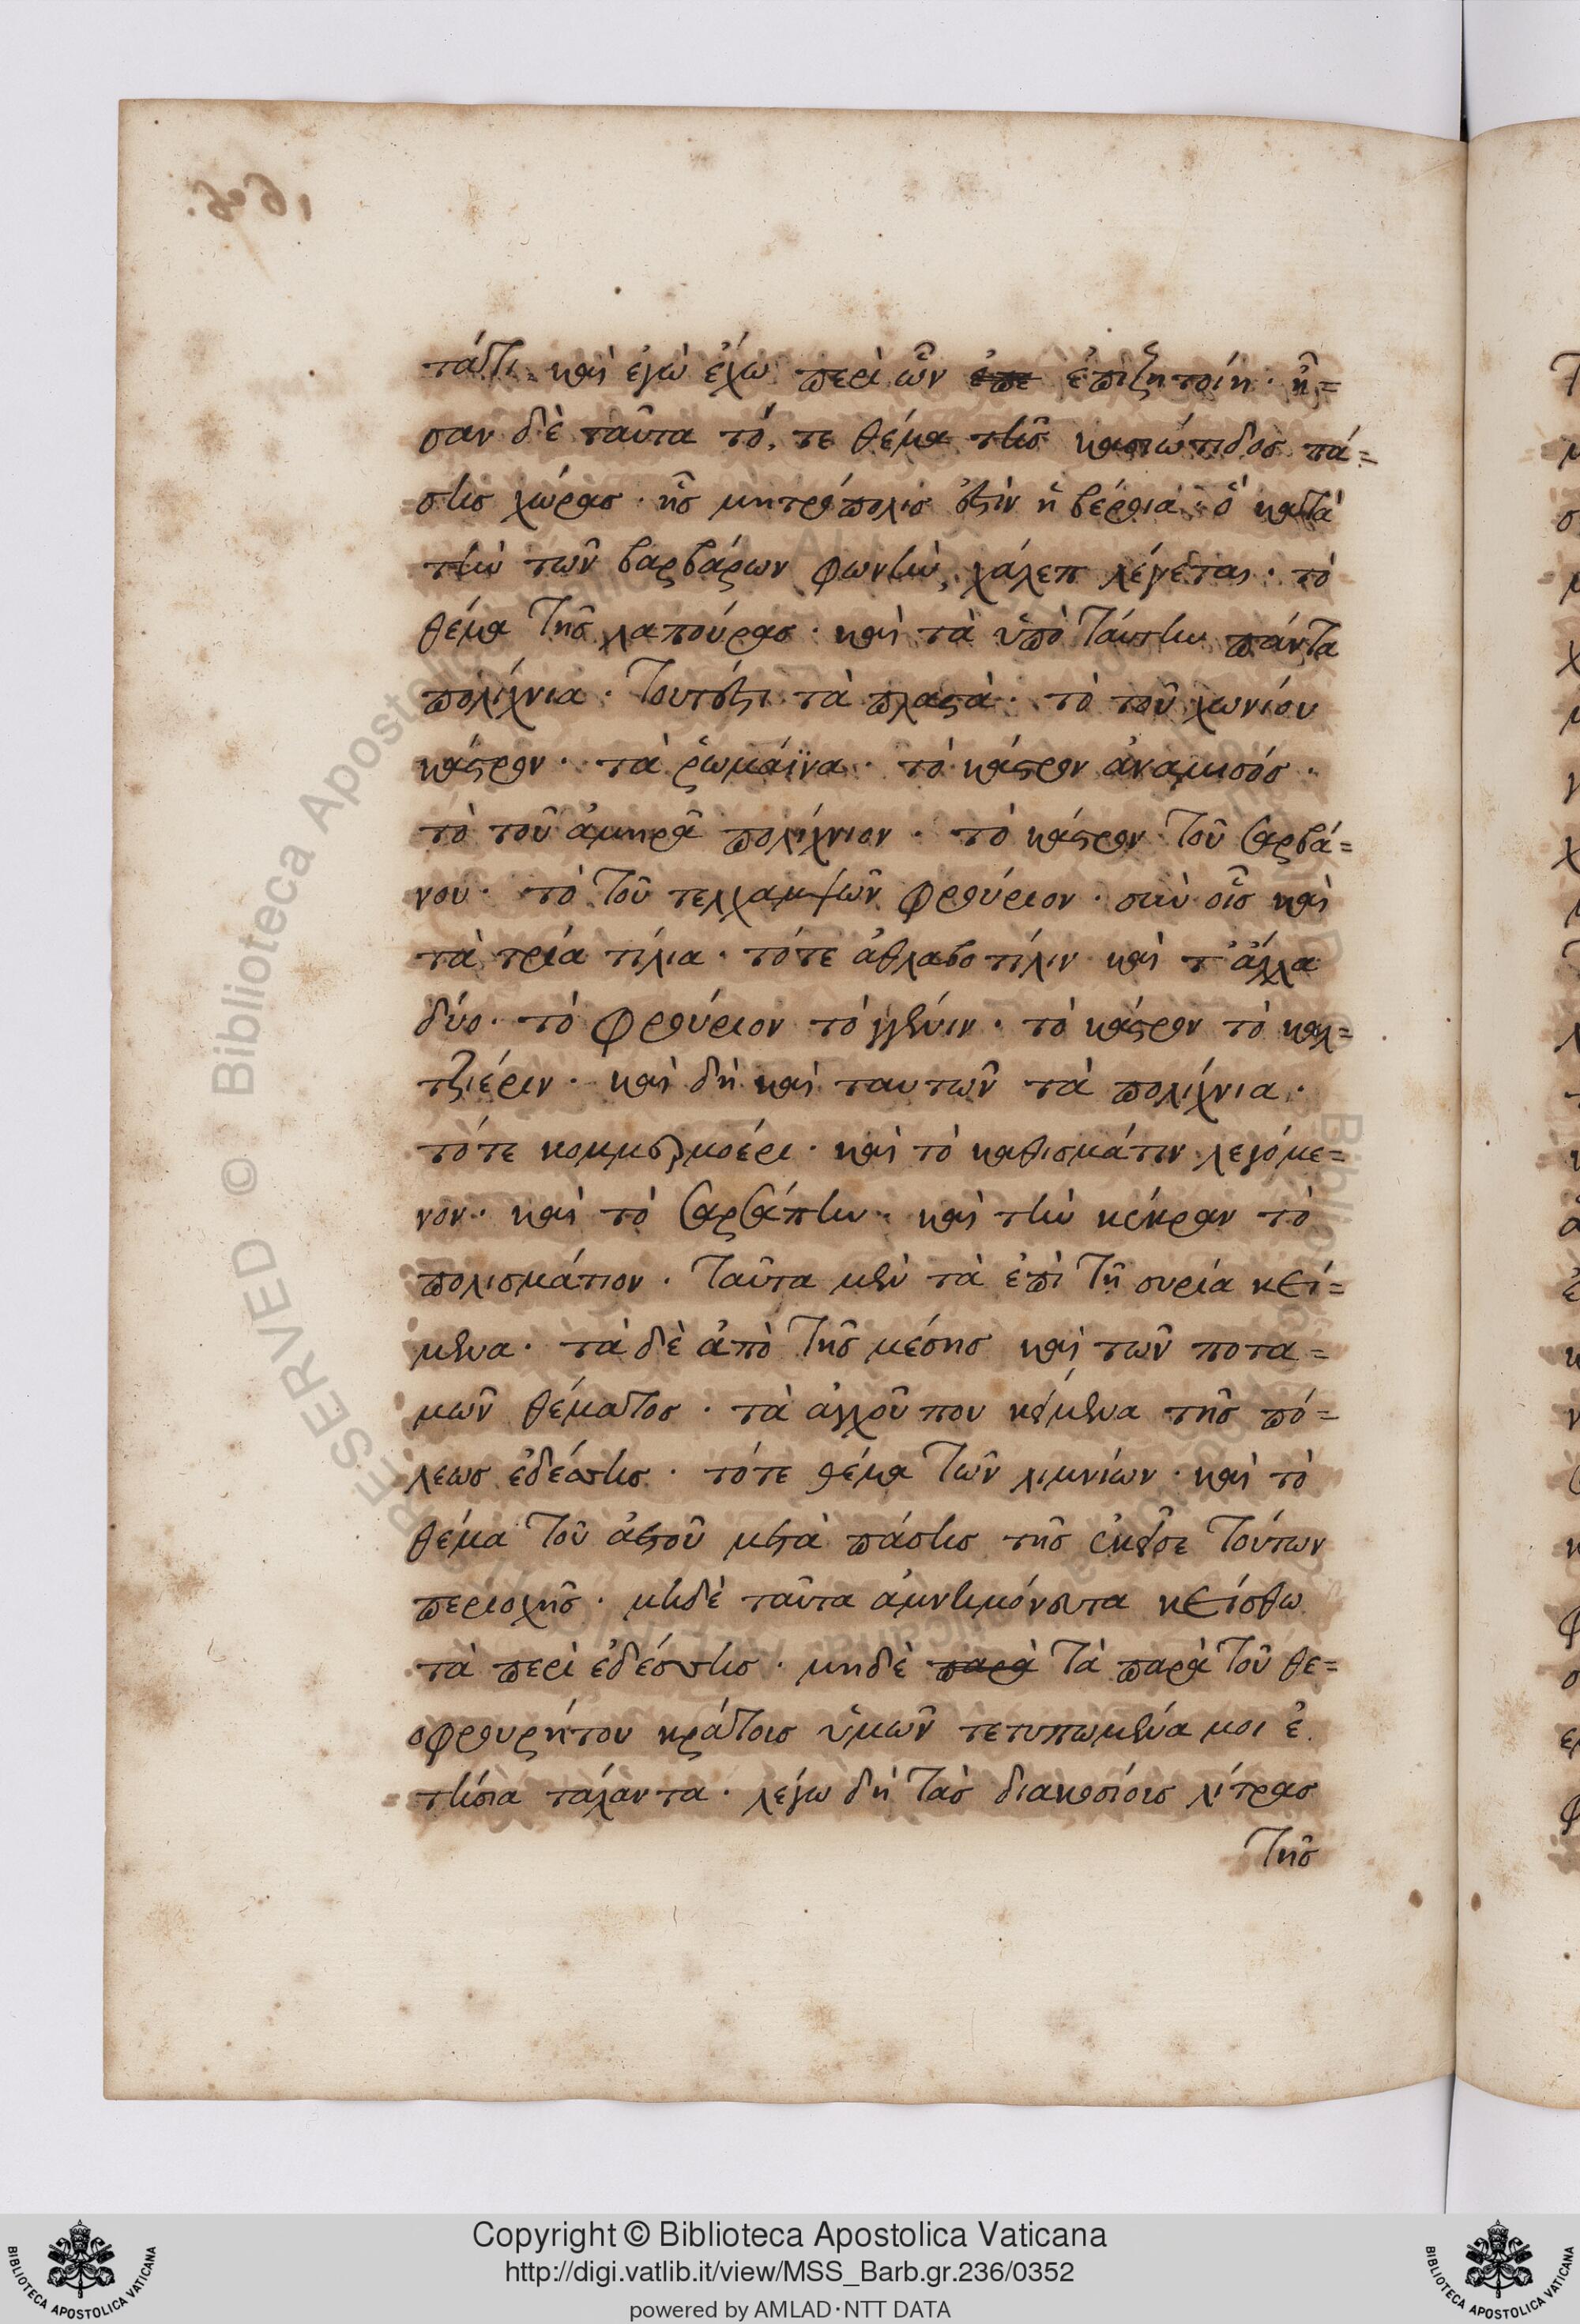 τάδι. καὶ ἐγὼ ἔχω περὶ ὧν ἐπε ἐπιζητοίη· ἦ=
σαν δὲ ταῦτα τό, τε θέμα τῆς κασιώτιδος πά=
σης χώρας· ἧς μητρόπολις ἐστὶν ἡ βέρροια· ὃ κατὰ
τὴν τῶν βαρβάρων φωνὴν, χάλεπ λέγεται· τὸ
θέμα τῆς λαπούρας· καὶ τὰ ὑπὸ ταύτην πάντα
πολίχνια· τουτέστι τὰ πλαστὰ· τὸ τοῦ χωνίου
κάστρον· τὰ ῥωμάϊνα· τὸ κάστρον ἀναμισός·
τὸ τοῦ ἀμηρᾶ πολίχνιον· τὸ κάστρον τοῦ σαρβά=
νου· τὸ τοῦ τελχαμψῶν φρούριον· σὺν οἷς καὶ
τὰ τρία τίλια· τότε ἀθλαβοτίλιν καὶ τἄλλα
δύο· τὸ φρούριον τὸ γγένιν· τὸ κάστρον τὸ καλ=
τζιέριν· καὶ δὴ καὶ ταυτῶν τὰ πολίχνια·
τότε κομμεσμοέρι· καὶ τὸ καθισμάτιν λεγόμε=
νον· καὶ τὸ σαρσάπην· καὶ τὴν μέκραν τὸ
πολισμάτιον· ταῦτα μὲν τὰ ἐπὶ τῇ συρία κεί=
μενα· τὰ δὲ ἀπὸ τῆς μέσης καὶ τῶν ποτα=
μῶν θέματος· τὰ ἀγχοῦ που κείμενα τῆς πό=
λεως ἐδέσσης· τότε θέμα τῶν λιμνίων· καὶ τὸ
θέμα τοῦ ἀετοῦ μετὰ πάσης τῆς ἐκεῖσε τούτων
περιοχῆς· μηδὲ ταῦτα ἀμνημόνευτα κείσθω
τὰ περὶ ἐδέσσης· μηδὲ παρὰ τὰ παρὰ τοῦ θε=
οφρουρήτου κράτοις ὑμῶν τετυπωμένα μοι ἐ
τήσια τάλαντα· λέγω δὴ τὰς διακοσίοις λίτρας
τῆς
Copyright © Biblioteca Apostolica Vaticana
http://digi.vatlib.it/view/MSS_Barb.gr.236/0352
powered by AMLAD·NTT DATA